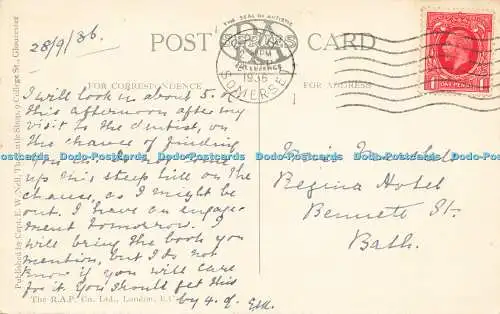 28/9/36.
POST CARD
THE SEAL OF ARTISTIC
EXCELLENCE
1936
SOMERSET
1 ONE PENNY 1
FOR CORRESPONDENCE
FOR ADDRESS
I will look in about 5.
this afternoon after my
visit to the dentist, on
the chance of finding
you.
up this steep hill on the
chance, as I might be
out. I have an engage
ment tomorrow. I
will bring the book you
mention, but I do not
know if you will care
for it. You should get this
by 4.
Regina Hotel
Bennett St.
Bath.
Published by Capt. E. W. Nell, The Smile Shop, 9 College St., Gloucester
The R.A.P. Co. Ltd., London, E.C.
Dodo-Postcards Dodo-Postcards Dodo-Postcards Dodo-Postcards Dodo-Postcards Dodo-Postcards